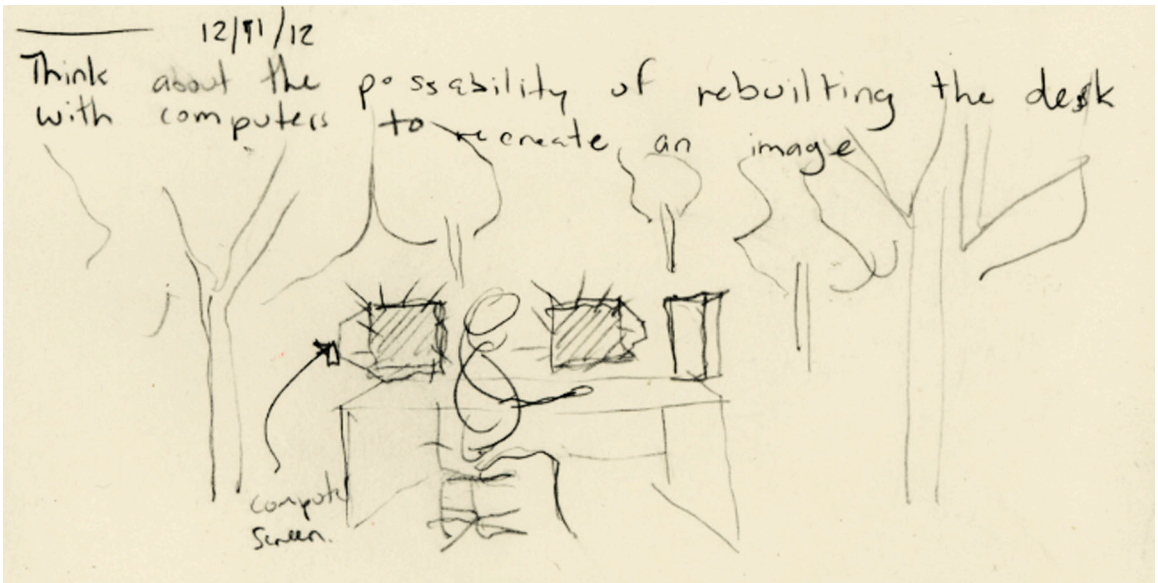 12/11/12
Think about the possability of rebuilting the desk
with computers to recreate an image
compute
screen.